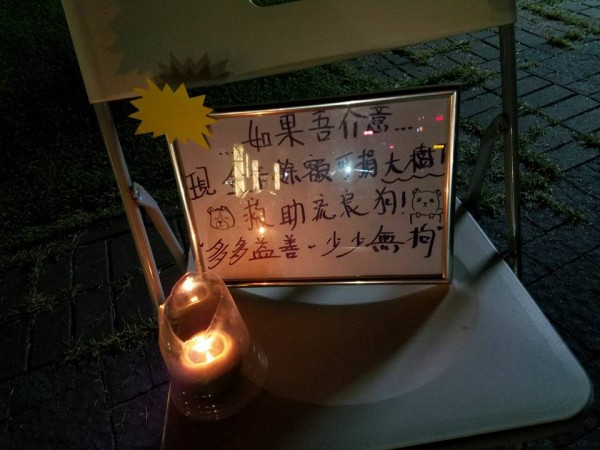 ...如果吾介意...
現金卡餘額可捐大樹!
救助流浪狗!
"多多益善、少少無拘"